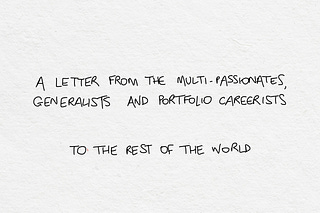 A LETTER FROM THE MULTI-PASSIONATES,
GENERALISTS AND PORTFOLIO CAREERISTS
TO THE REST OF THE WORLD